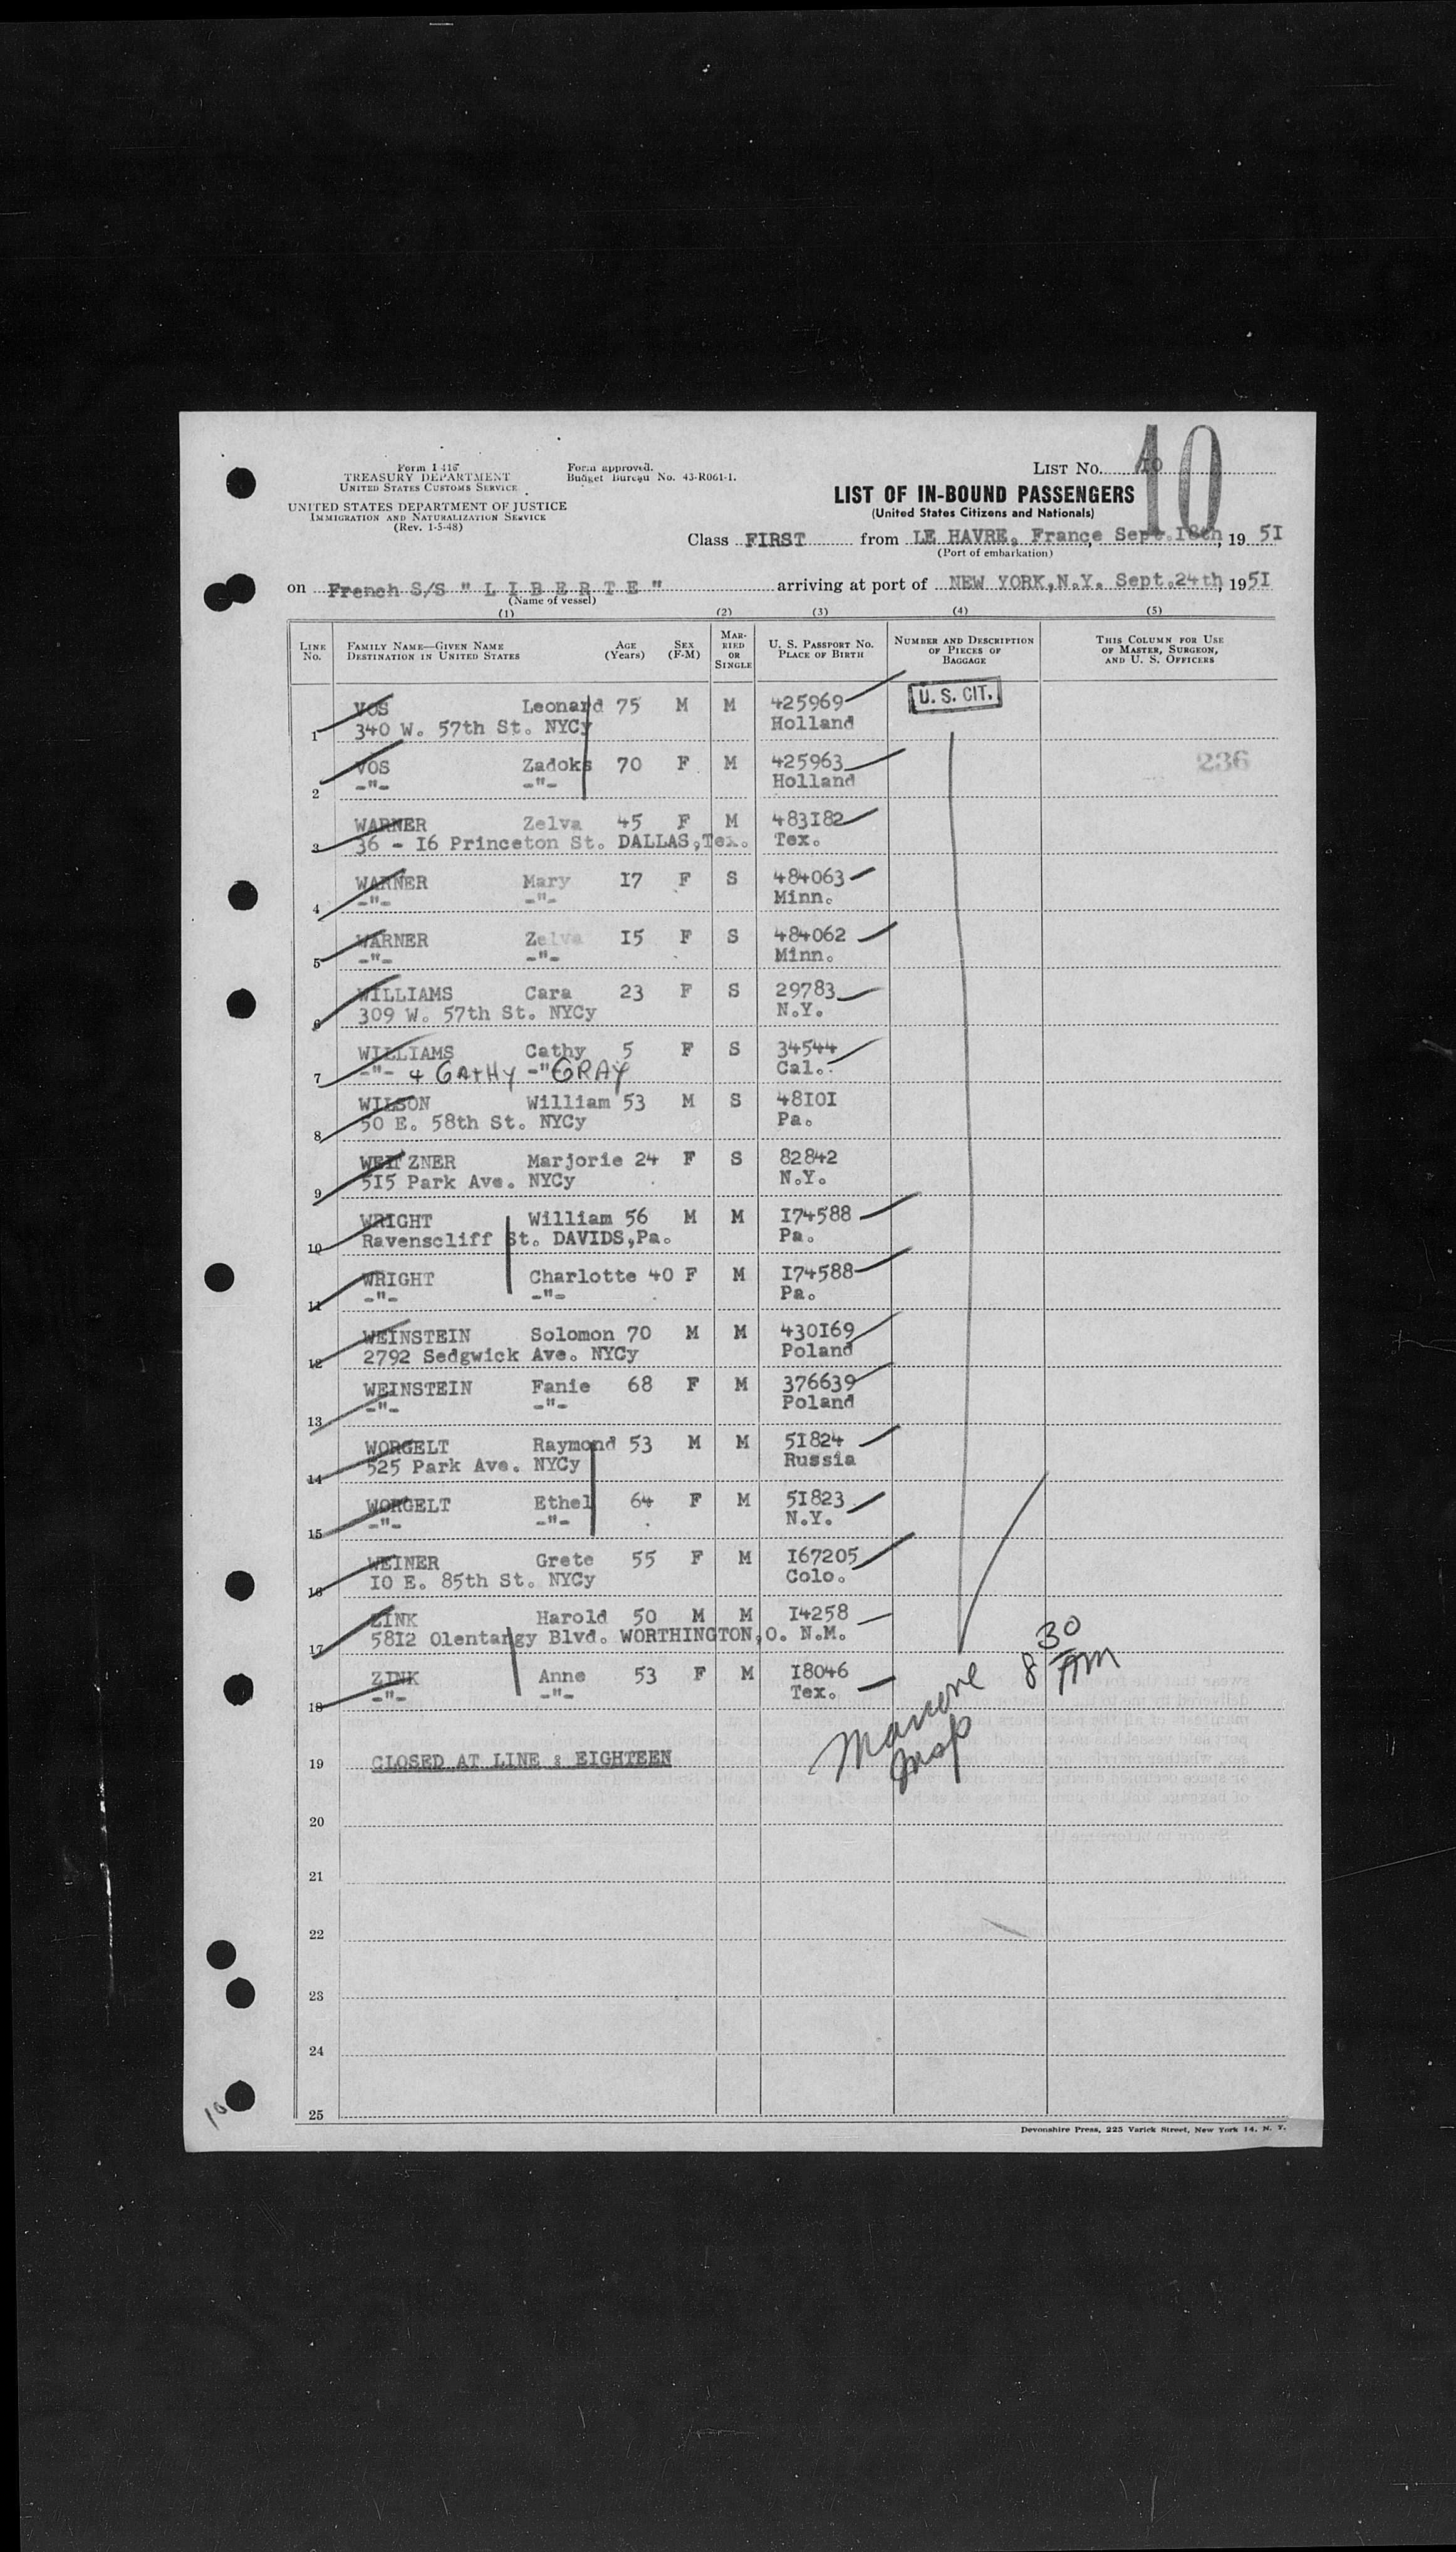 Form I 416
TREASURY DEPARTMENT
UNITED STATES CUSTOMS SERVICE
UNITED STATES DEPARTMENT OF JUSTICE
IMMIGRATION AND NATURALIZATION SERVICE
(Rev. 1-5-48)
Form approved.
Budget Bureau No. 43-R061-1.
LIST NO. 10
10
LIST OF IN-BOUND PASSENGERS
(United States Citizens and Nationals)
Class FIRST from LE HAVRE, France, Sept.I8th, 19 5I
(Port of embarkation)
on French S/S " L I B E R T E " arriving at port of NEW YORK,N.Y. Sept.24th, 195I
(Name of vessel)
(1) (2) (3) (4) (5)
LINE NO. FAMILY NAME—GIVEN NAME DESTINATION IN UNITED STATES AGE (Years) SEX (F-M) MARRIED OR SINGLE U. S. PASSPORT NO. PLACE OF BIRTH NUMBER AND DESCRIPTION OF PIECES OF BAGGAGE THIS COLUMN FOR USE OF MASTER, SURGEON, AND U. S. OFFICERS
VOS Leonard 75 M M 425969 U. S. CIT.
1 340 W. 57th St. NYCy Holland
VOS Zadoks 70 F M 425963 236
2 -"- -"- Holland
WARNER Zelva 45 F M 483I82
3 36 - I6 Princeton St. DALLAS,Tex. Tex.
WARNER Mary I7 F S 484063
4 -"- -"- Minn.
WARNER Zelva I5 F S 484062
5 -"- -"- Minn.
WILLIAMS Cara 23 F S 29783
6 309 W. 57th St. NYCy N.Y.
WILLIAMS Cathy 5 F S 34544
7 -"- CATHY -" GRAY Cal.
WILSON William 53 M S 48I0I
8 50 E. 58th St. NYCy Pa.
WEITZNER Marjorie 24 F S 82842
9 5I5 Park Ave. NYCy N.Y.
WRIGHT William 56 M M I74588
10 Ravenscliff St. DAVIDS,Pa. Pa.
WRIGHT Charlotte 40 F M I74588
11 -"- -"- Pa.
WEINSTEIN Solomon 70 M M 430I69
12 2792 Sedgwick Ave. NYCy Poland
WEINSTEIN Fanie 68 F M 376639
13 -"- -"- Poland
WORGELT Raymond 53 M M 5I824
14 525 Park Ave. NYCy Russia
WORGELT Ethel 64 F M 5I823
15 -"- -"- N.Y.
WEINER Grete 55 F M I67205
16 I0 E. 85th St. NYCy Colo.
ZINK Harold 50 M M I4258
17 58I2 Olentangy Blvd. WORTHINGTON,O. N.M.
ZINK Anne 53 F M I8046
18 -"- -"- Tex.
8 30 AM
19 CLOSED AT LINE : EIGHTEEN
20
21
22
23
24
25
10
Devonshire Press, 225 Varick Street, New York 14, N. Y.